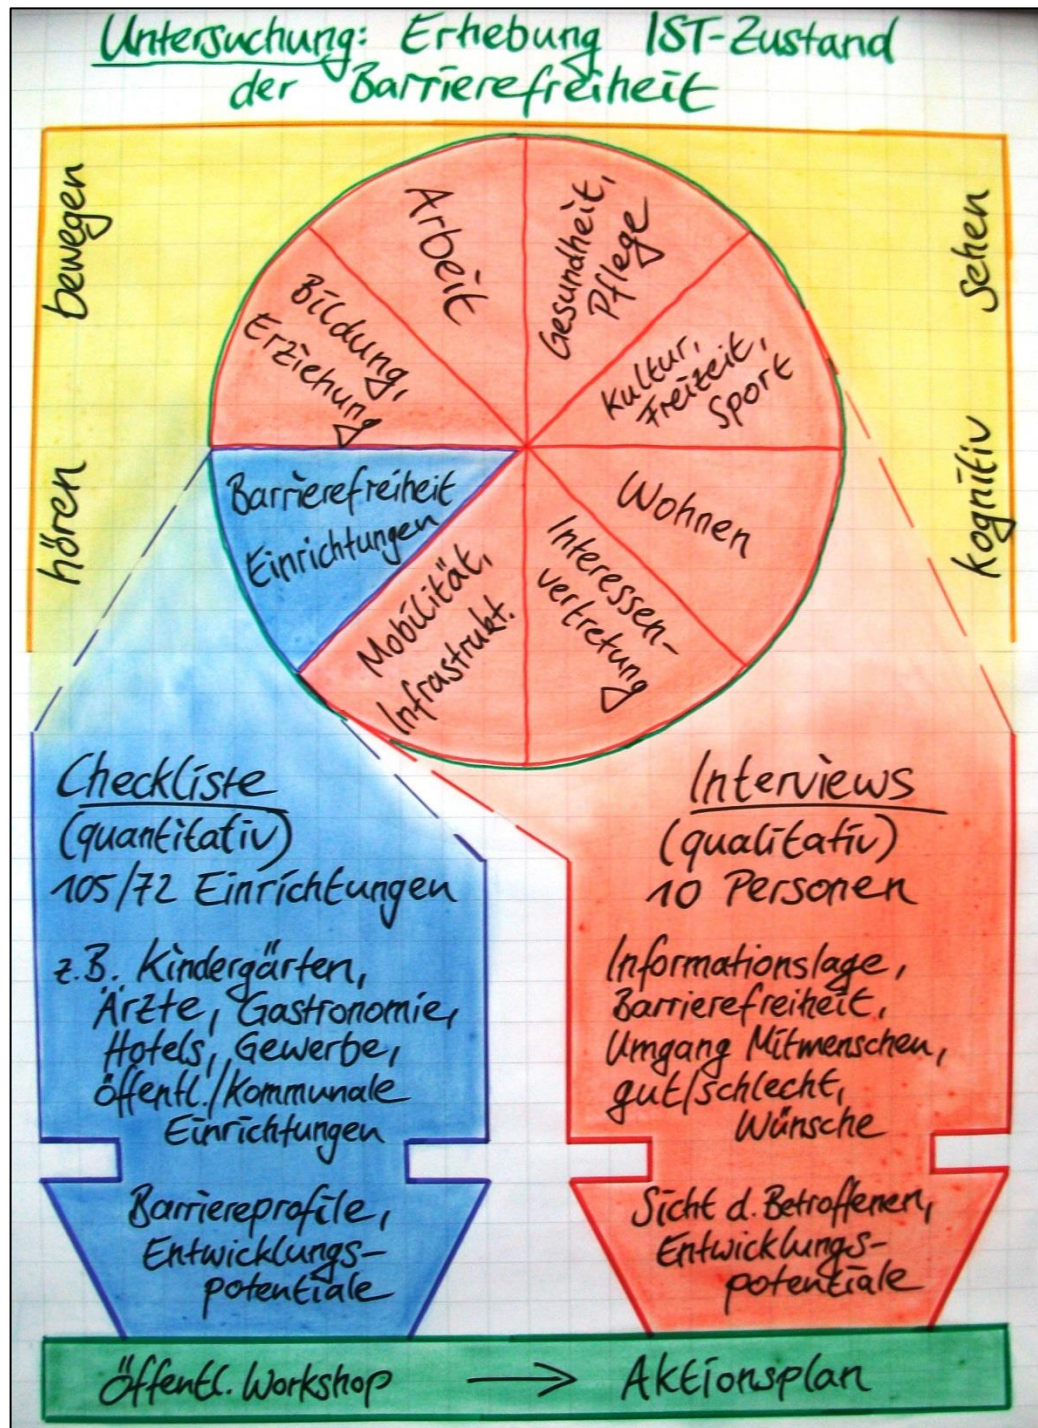 Untersuchung: Erhebung IST-Zustand
der Barrierefreiheit
bewegen
hören
sehen
kognitiv
Arbeit
Gesundheit,
Pflege
Kultur,
Freizeit,
Sport
Wohnen
Interessen-
vertretung
Mobilität,
Infrastrukt.
Barrierefreiheit
Einrichtungen
Bildung,
Erziehung
Checkliste
(quantitativ)
105/72 Einrichtungen
z.B. Kindergärten,
Ärzte, Gastronomie,
Hotels, Gewerbe,
öffentl./kommunale
Einrichtungen
Barriereprofile,
Entwicklungs-
potentiale
Interviews
(qualitativ)
10 Personen
Informationslage,
Barrierefreiheit,
Umgang Mitmenschen,
gut/schlecht,
Wünsche
Sicht d. Betroffenen,
Entwicklungs-
potentiale
Öffentl. Workshop → Aktionsplan